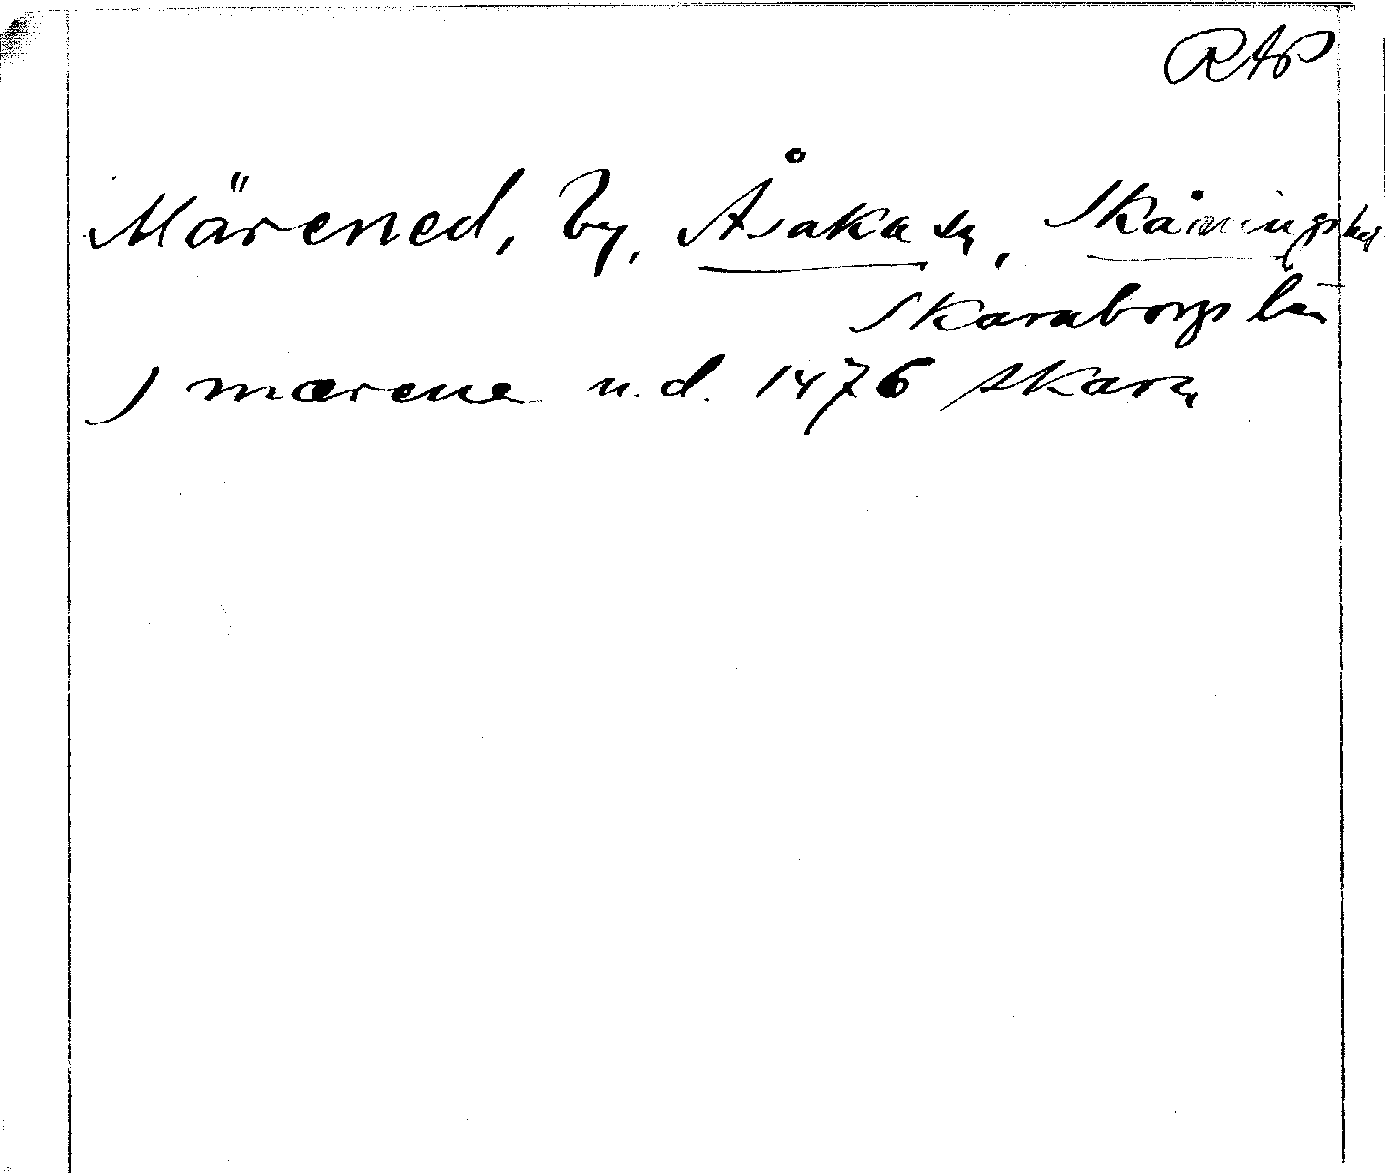 RAP
Märened, by, Åsaka sn, Skånings hd
Skaraborgs län
J mærene u.d. 1476 Skara